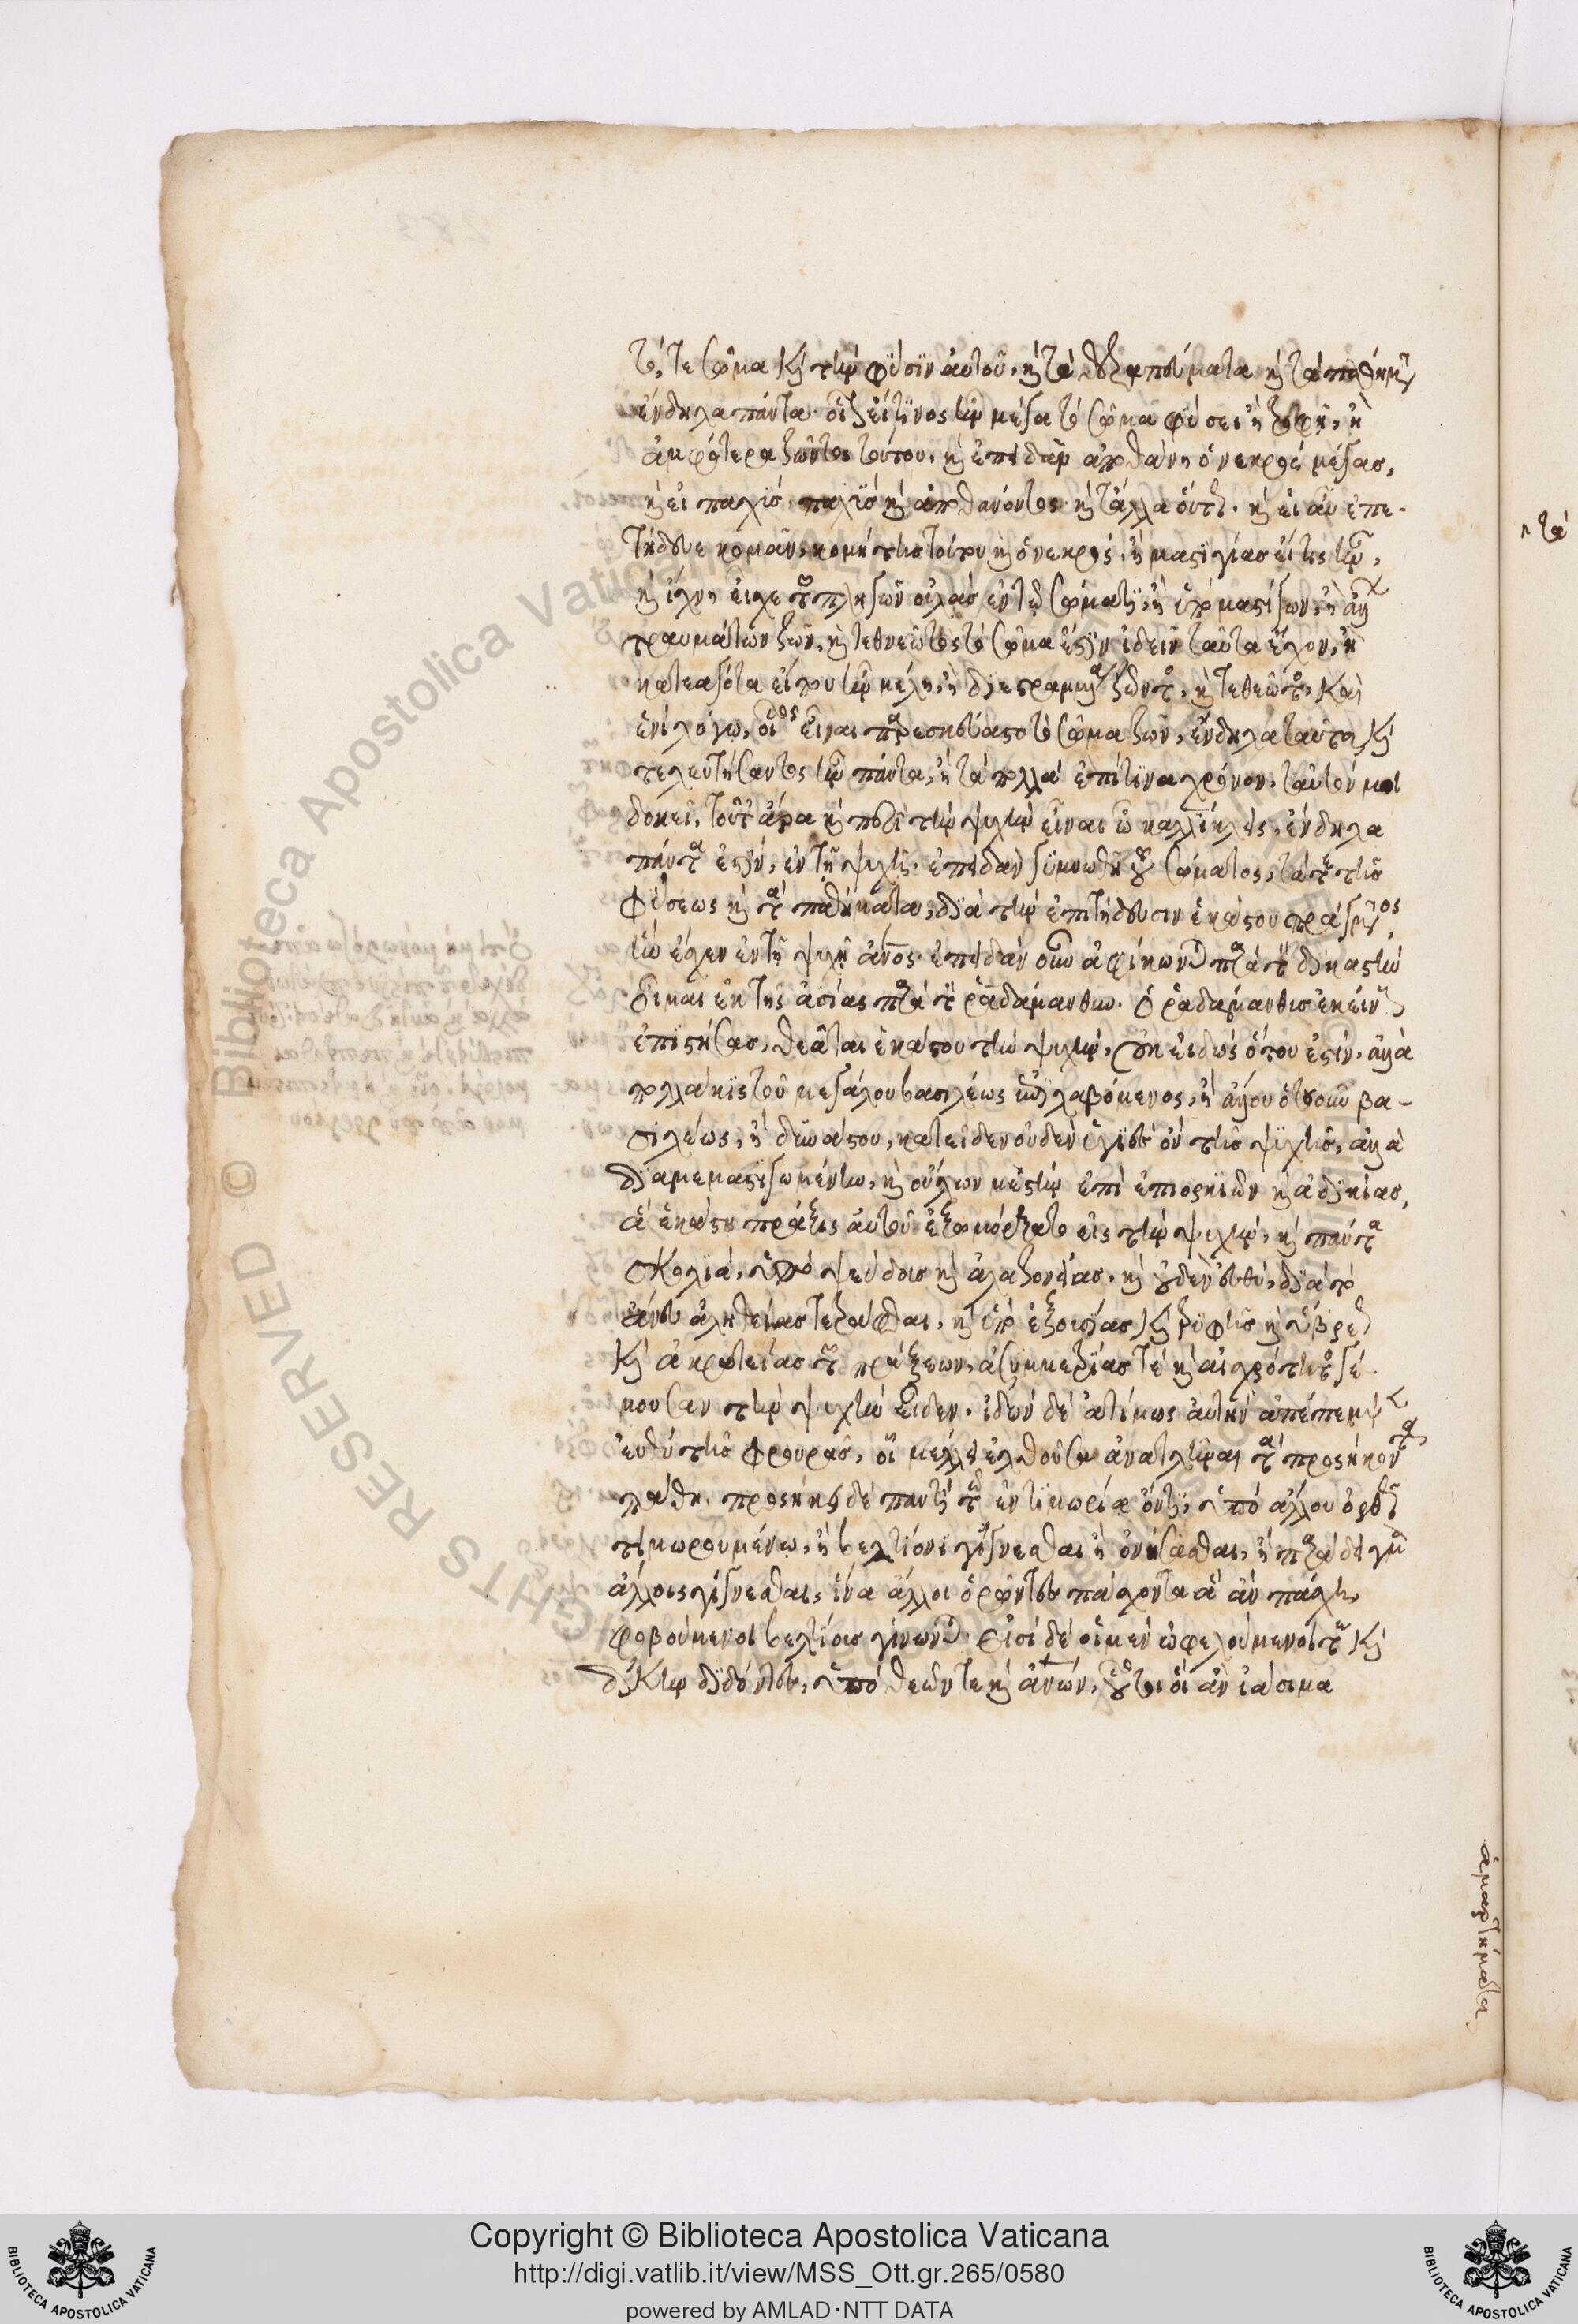 τό, τε σῶμα καὶ τὴν φύσιν αὐτοῦ, καὶ τὰ θεραπεύματα καὶ τὰ παθήματα
ἔνδηλα πάντα· οἷον εἴ τινος ἦν μέγα τὸ σῶμα φύσει ἢ τροφῆ, ἢ
ἀμφότερα ζῶντος τούτου, καὶ ἐπειδὰν ἀποθάνη ὁ νεκρὸς μέγας,
καὶ εἰ παχὺς, παχὺς καὶ ἀποθανόντος· καὶ τἄλλα οὕτως. καὶ εἰ αὖ ἐπε-
τήδευε κομᾶν, κομήτης τούτου καὶ ὁ νεκρός, ἢ μαστιγίας εἴ τις ἦν,
καὶ ἴχνη εἶχε τῶν πληγῶν οὐλὰς ἐν τῷ σώματι, ἢ ὑπὸ μαστίγων, ἢ ἄλλων
τραυμάτων ζῶν, καὶ τεθνεῶτος τὸ σῶμα ἔστιν ἰδεῖν ταῦτα ἔχον, ἢ
κατεαγότα εἴ που ἦν μέλη, ἢ διεστραμμένα ζῶντος, καὶ τεθνεῶτος, καὶ
ἑνὶ λόγω, οἷος εἶναι παρεσκεύαστο τὸ σῶμα ζῶν, ἔνδηλα ταῦτα καὶ
τελευτήσαντος ἦν πάντα, ἢ τὰ πολλὰ ἐπί τινα χρόνον, ταὐτόν μοι
δοκεῖ, τοῦτ' ἄρα καὶ περὶ τὴν ψυχὴν εἶναι ὦ καλλίκλεις, ἔνδηλα
πάντα ἐστὶν, ἐν τῆ ψυχῆ· ἐπειδὰν γυμνωθῆ τοῦ σώματος, τά τε τῆς
φύσεως καὶ τὰ παθήματα, διὰ τὴν ἐπιτήδευσιν ἑκάστου πράγματος,
ἣν ἔσχεν ἐν τῆ ψυχῆ ἄνος· ἐπειδὰν οὖν ἀφίκωνται παρὰ τὸν δικαστὴν
οἱ μὲν ἐκ τῆς ἀσίας παρὰ τὸν ῥαδάμανθυν. ὁ ῥαδάμανθυς ἐκείνους
ἐπιστήσας, θεᾶται ἑκάστου τὴν ψυχὴν, οὐκ εἰδὼς ὅτου ἐστίν, ἀλλὰ
πολλάκις τοῦ μεγάλου βασιλέως ἐπιλαβόμενος, ἢ ἄλλου ὁτουοῦν βα-
σιλέως, ἢ δυνάστου, κατεῖδεν οὐδὲν ὑγιὲς ὂν τῆς ψυχῆς, ἀλλὰ
διαμεμαστιγωμένην, καὶ οὐλῶν μεστὴν ἐπὶ ἐπιορκιῶν καὶ ἀδικίας,
ἃ ἑκάστη πρᾶξις αὐτοῦ ἐξωμόρξατο εἰς τὴν ψυχὴν, καὶ πάντα
σκολιὰ, ὑπὸ ψεύδους καὶ ἀλαζονείας, καὶ οὐδὲν εὐθὺ, διὰ τὸ
ἄνευ ἀληθείας τεθράφθαι, καὶ ὑπὸ ἐξουσίας καὶ τρυφῆς καὶ ὕβρεως
καὶ ἀκρατείας τῶν πράξεων, ἀσυμμετρίας τὲ καὶ αἰσχρότητος γέ-
μουσαν τὴν ψυχὴν εἶδεν. ἰδὼν δὲ ἀτίμως αὐτὴν ἀπέπεμψεν
εὐθὺ τῆς φρουρᾶς, οἷ μέλλει ἐλθοῦσα ἀνατλῆναι τὰ προσήκοντα
πάθη. προσήκει δὲ παντὶ τῷ ἐν τιμωρία ὄντι, ὑπὸ ἄλλου ὀρθῶς
τιμωρουμένω, ἢ βελτίονι γίγνεσθαι ἢ ὀνήσασθαι, ἢ παραδείγματι
ἄλλοις γίγνεσθαι, ἵνα ἄλλοι ὁρῶντες πάσχοντα ἃ ἂν πάσχη,
φοβούμενοι βελτίους γίνωνται. εἰσὶ δὲ οἱ μὲν ὠφελούμενοί τε καὶ
δίκην διδόντες, ὑπὸ θεῶν τε καὶ ἀνων, οὗτοι οἳ ἂν ἰάσιμα
ἁμαρτήματα
τὰ
Copyright © Biblioteca Apostolica Vaticana
http://digi.vatlib.it/view/MSS_Ott.gr.265/0580
powered by AMLAD·NTT DATA